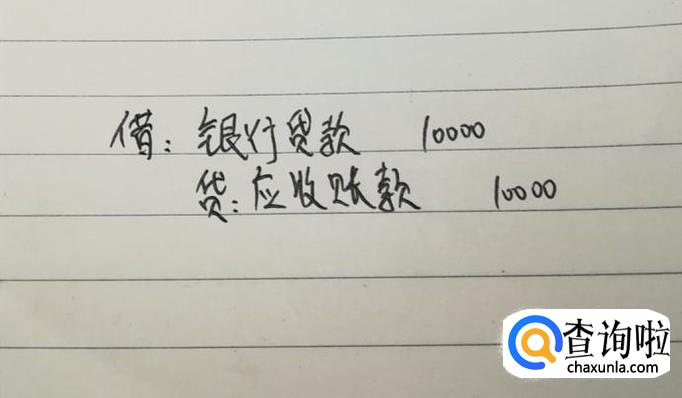 借：银行贷款 10000
贷：应收账款 10000
查询啦
chaxunla.com